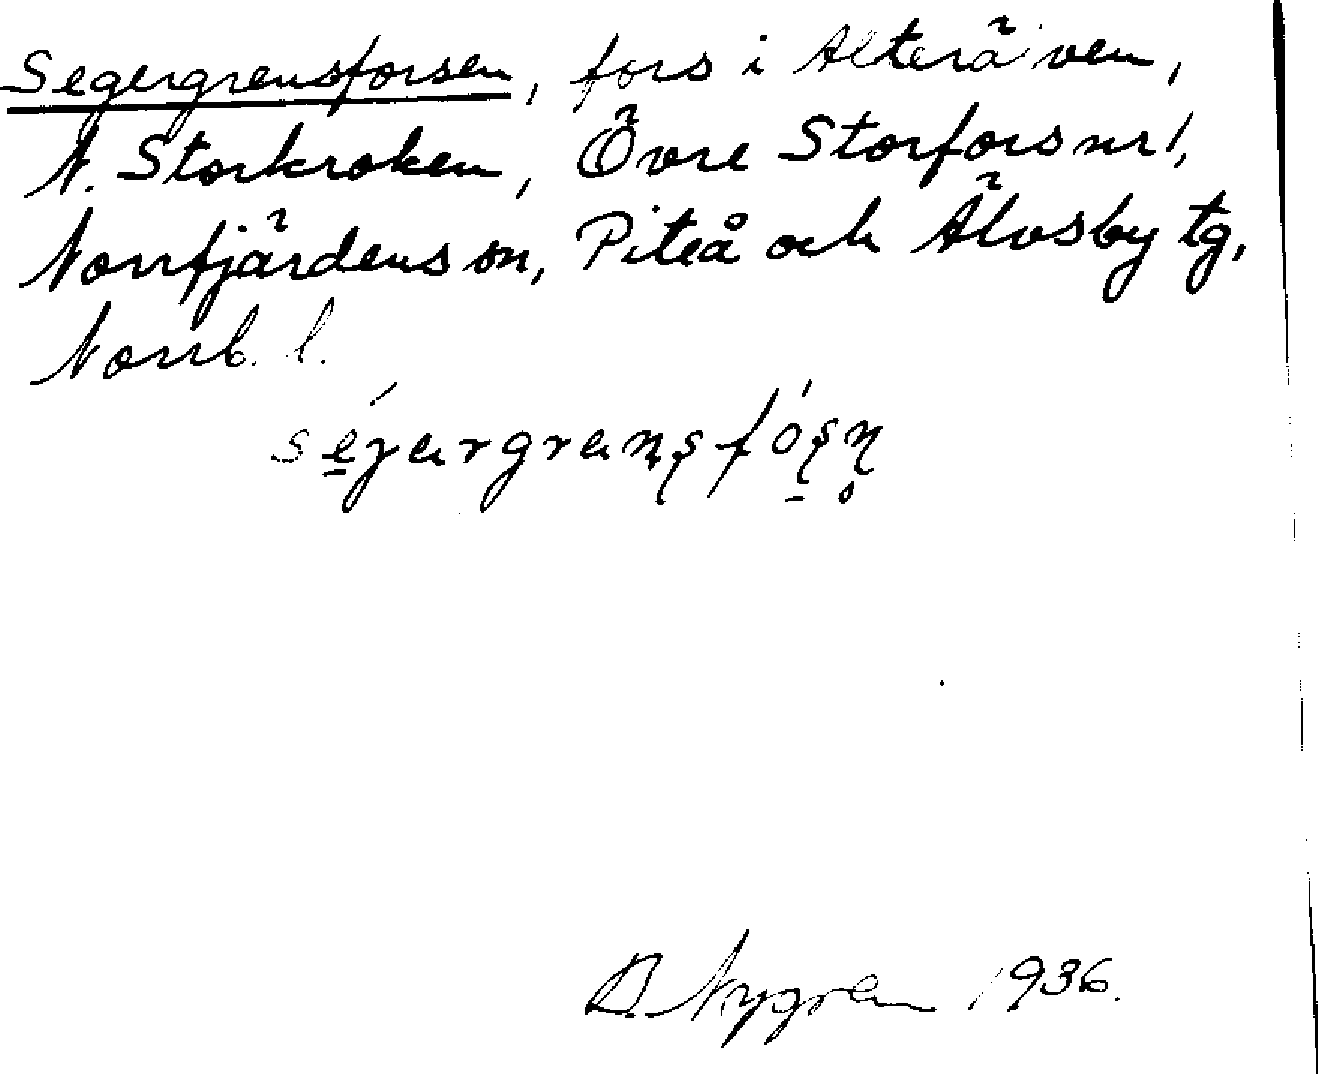 Segergrensforsen, fors i Alterälven,
N. Storkroken, Övre Storforsnr 1,
Norrfjärdens sn, Piteå och Älvsby tg,
Norrb. l.
B. Nygren 1936.